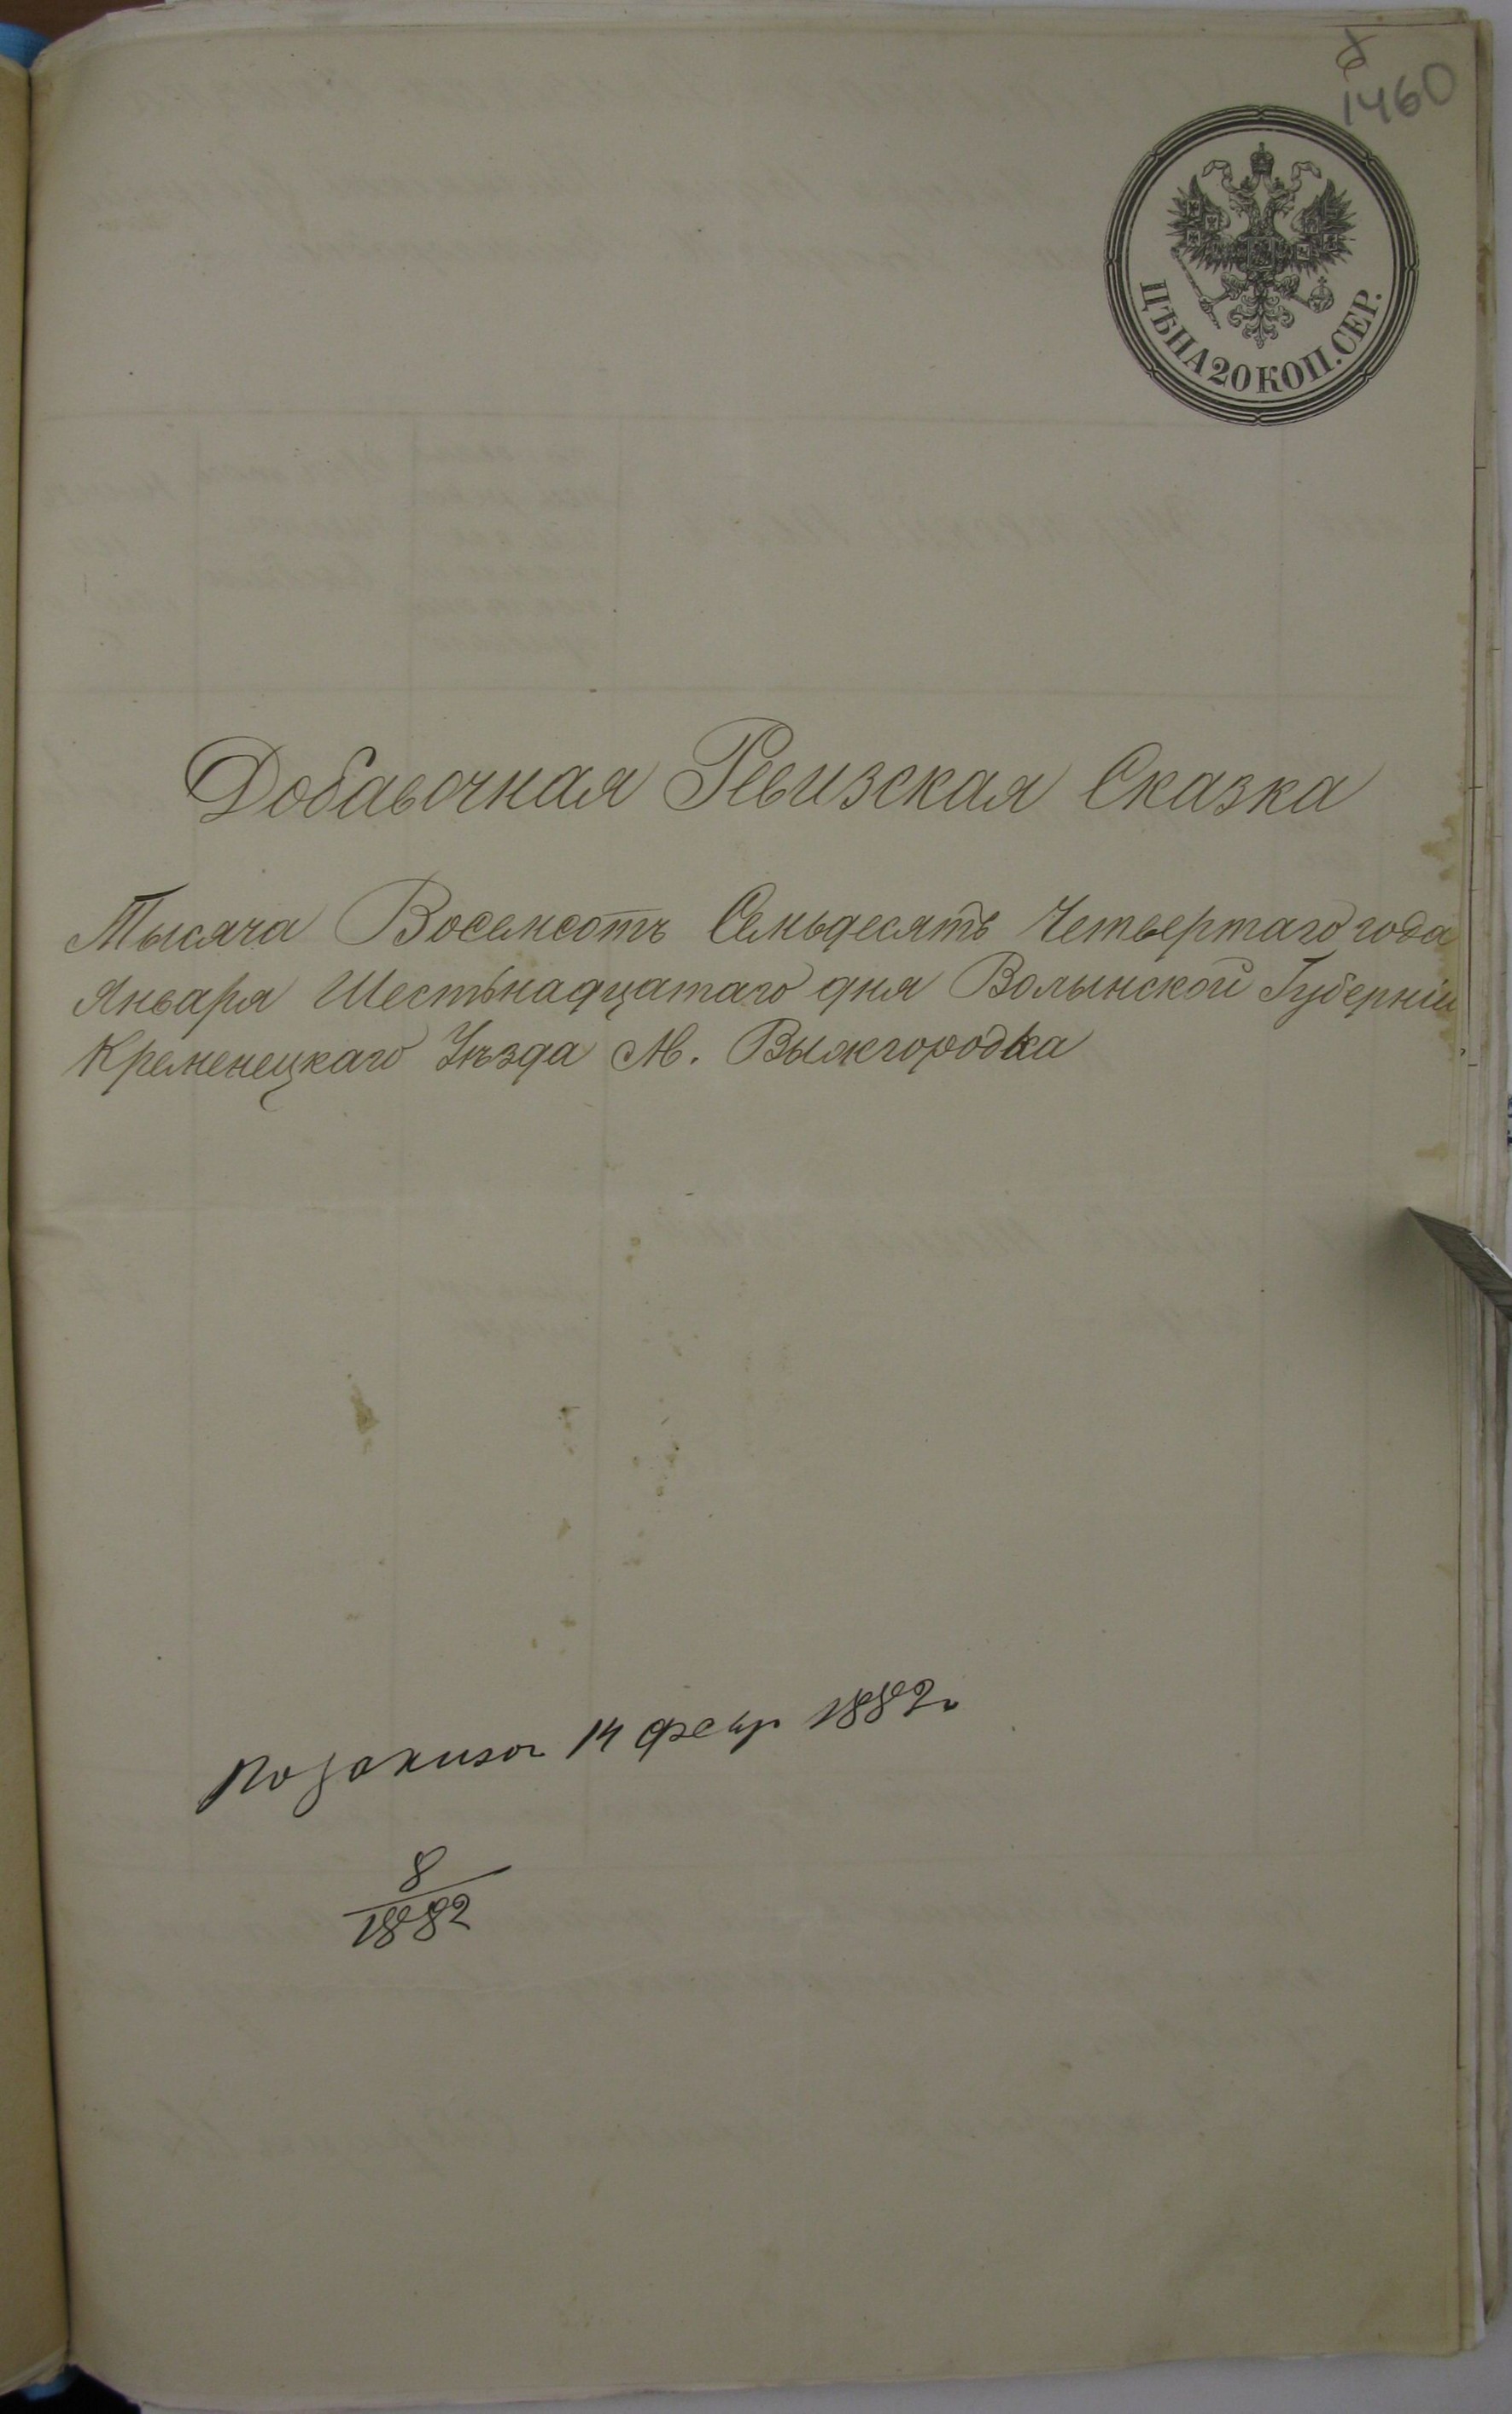 1460
ЦѢНА 20 КОП. СЕР.
Добавочная Ревизская Сказка
Тысяча Восемсотъ Семьдесятъ Четвертаго года
Января Шестьнадцатаго дня Волынской Губерніи
Кременецкаго Уѣзда М. Выжгородка
14 февр 1882
8
1882